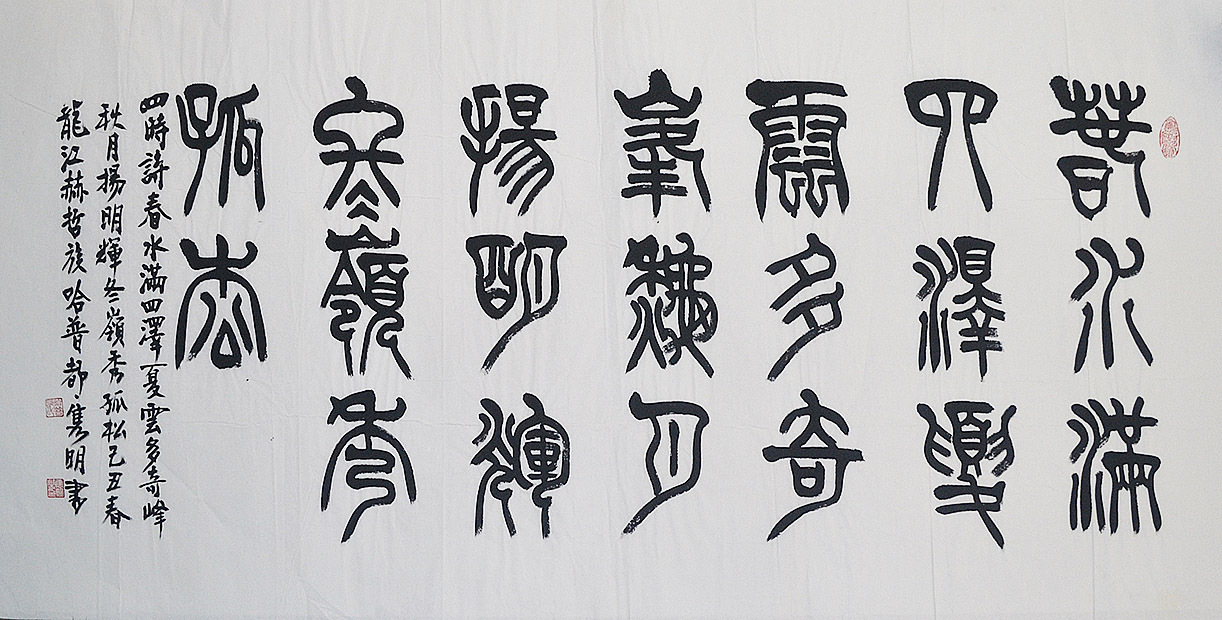 春水滿
四澤夏
雲多奇
峯穐月
揚明輝
冬嶺秀
孤松
四時詩春水滿四澤夏雲多奇峰
秋月揚明輝冬嶺秀孤松己丑春
龍江赫哲族哈普都·隽明書